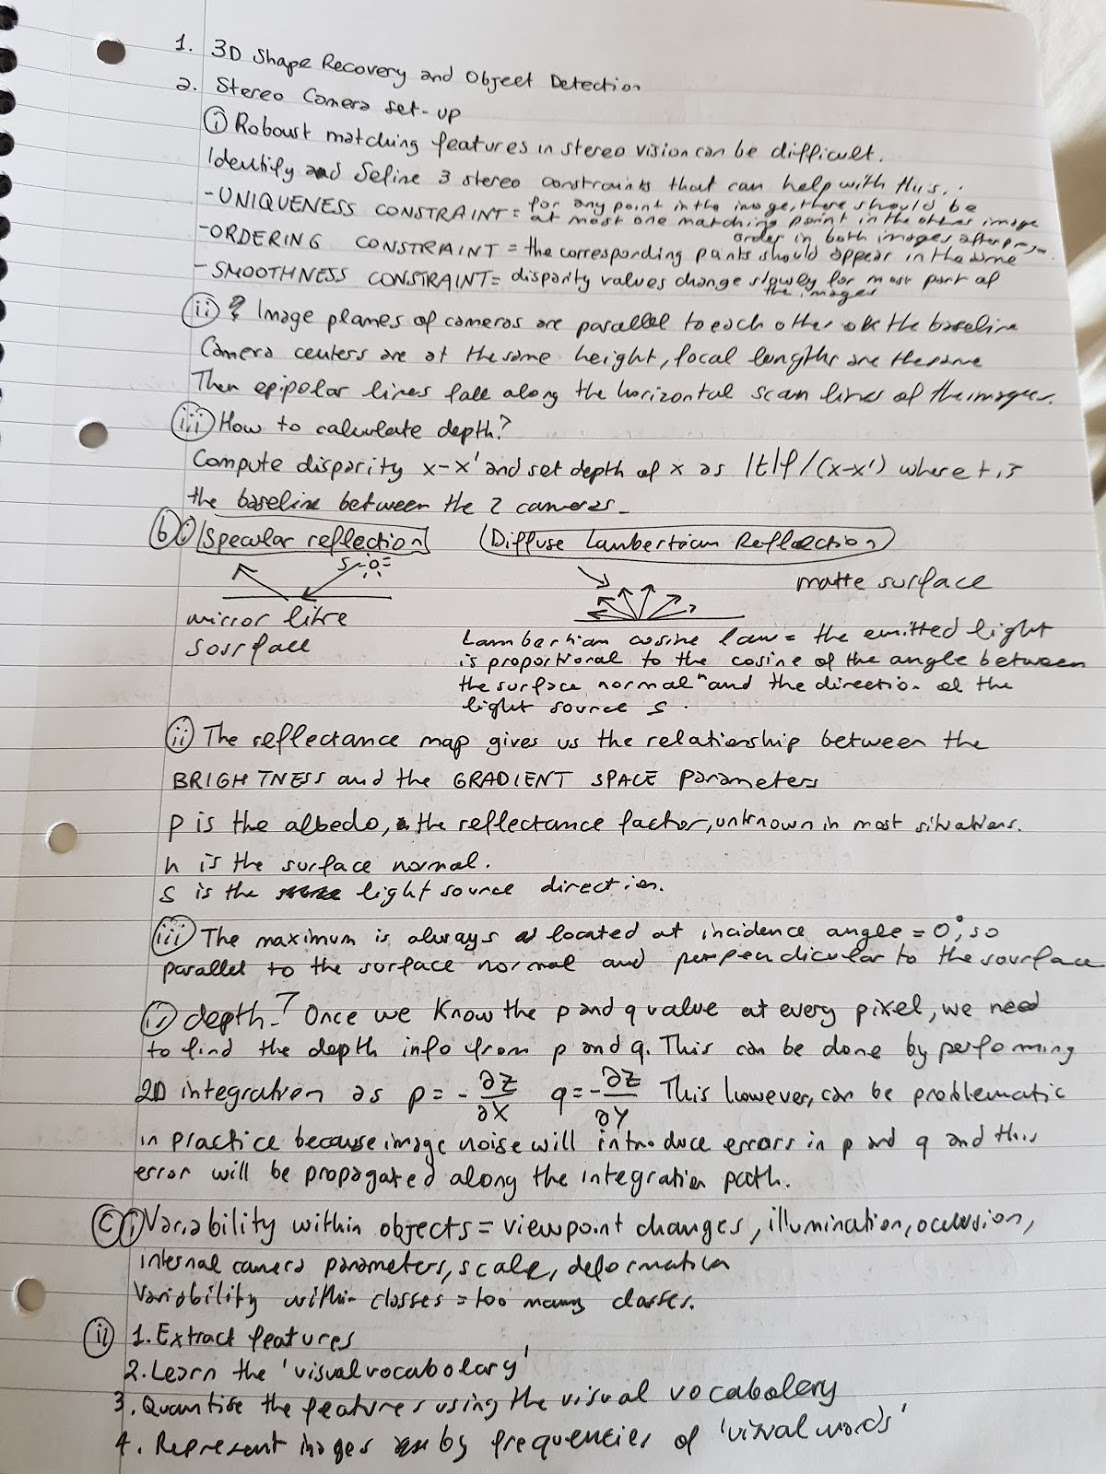 1. 3D Shape Recovery and Object Detection
2. Stereo Camera set-up
(i) Roboust matching features in stereo vision can be difficult.
Identify and Define 3 stereo constraints that can help with this.
-UNIQUENESS CONSTRAINT = for any point in the image, there should be
at most one matching point in the other image
-ORDERING CONSTRAINT = the corresponding points should appear in the same
order in both images after
-SMOOTHNESS CONSTRAINT = disparity values change slowly for most part of
the images
(ii) Image planes of cameras are parallel to each other the baseline
Camera centers are at the same height, focal lengths are the same
Then epipolar lines fall along the horizontal scan lines of the images.
(iii) How to calculate depth?
Compute disparity x-x' and set depth of x as |t|f/(x-x') where t is
the baseline between the 2 cameras.
(b) (i) Specular reflection (Diffuse Lambertian Reflection)
S
matte surface
mirror like
surface
Lambertian cosine law = the emitted light
is proportional to the cosine of the angle between
the surface normal n and the direction of the
light source s.
(ii) The reflectance map gives us the relationship between the
BRIGHTNESS and the GRADIENT SPACE parameters
p is the albedo, the reflectance factor, unknown in most situations.
n is the surface normal.
s is the light source direction.
(iii) The maximum is always located at incidence angle = 0°, so
parallel to the surface normal and perpendicular to the sourface
depth? Once we know the p and q value at every pixel, we need
to find the depth info from p and q. This can be done by performing
2D integration as p = -∂Z/∂X q = -∂Z/∂Y This however, can be problematic
in practice because image noise will introduce errors in p and q and this
error will be propagated along the integration path.
(c) (i) Variability within objects = viewpoint changes, illumination, occlusion,
internal camera parameters, scale, deformation
Variability within classes = too many classes.
(ii) 1. Extract features
2. Learn the 'visual vocabolary'
3. Quantise the features using the visual vocabolary
4. Represent images by frequencies of 'visual words'